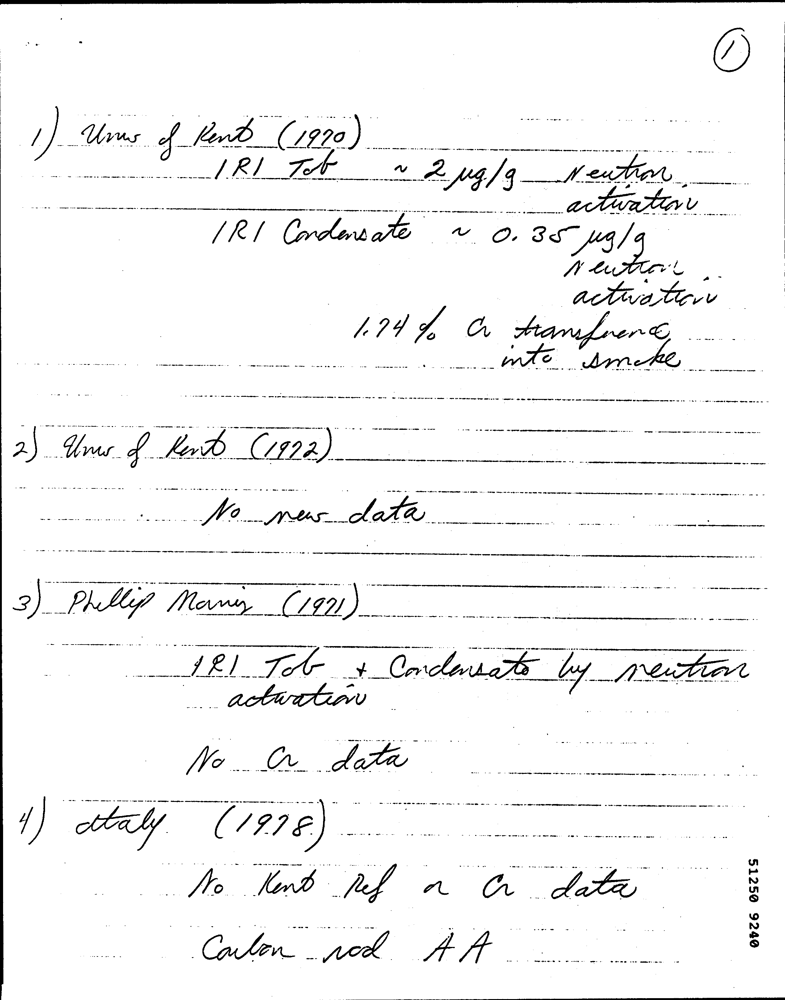 1
1) Univ of Kent (1970)
1R1 Tob ~ 2 µg/g Neutron
activation
1R1 Condensate ~ 0.35 µg/g
Neutron
activation
1.74% Cr transference
into smoke
2) Univ of Kent (1972)
No new data
3) Phillip Morris (1971)
1R1 Tob + Condensate by neutron
activation
No Cr data
4) Italy (1978)
No Kent Ref or Cr data
Carbon rod AA
51250 9240